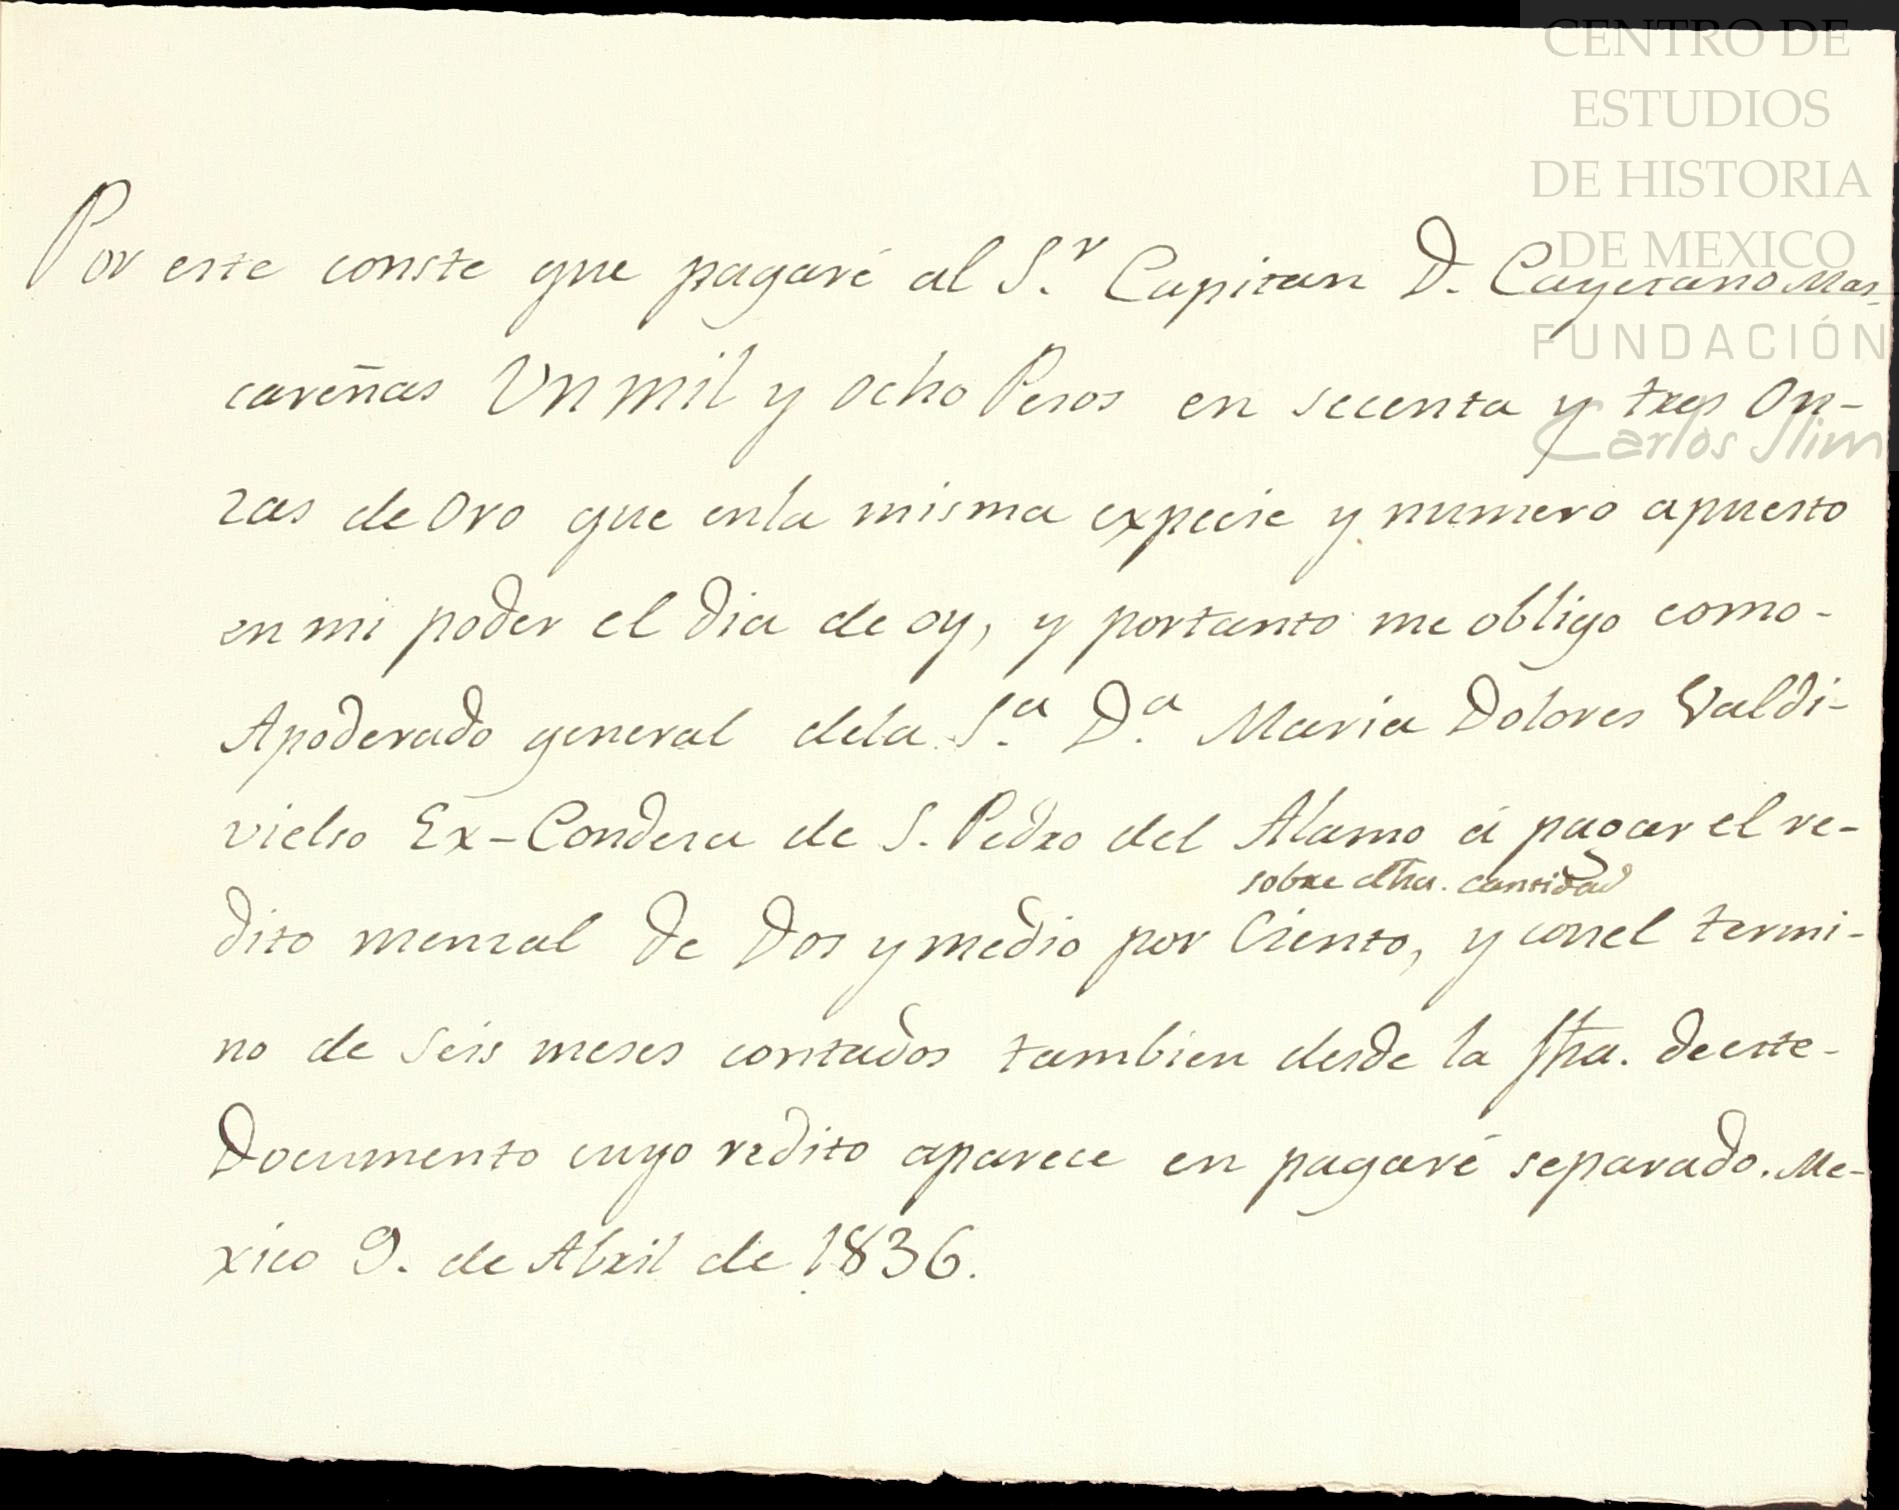 CENTRO DE
ESTUDIOS
DE HISTORIA
DE MEXICO
FUNDACIÓN
Carlos Slim
Por este conste que pagaré al S.r Capitan D. Cayetano Mas-
careñas Un mil y ocho Pesos en secenta y tres On-
zas de Oro que enla misma expecie y numero apuesto
en mi poder el dia de oy, y portanto me obligo como-
Apoderado general dela S.a D.a Maria Dolores Valdi-
vielso Ex-Condesa de S. Pedro del Alamo á pagar el re-
sobre dha. cantidad
dito mensal de Dos y medio por Ciento, y conel termi-
no de seis meses contados tambien desde la fha. deeste-
Documento cuyo redito aparece en pagaré separado. Me-
xico 9. de Abril de 1836.